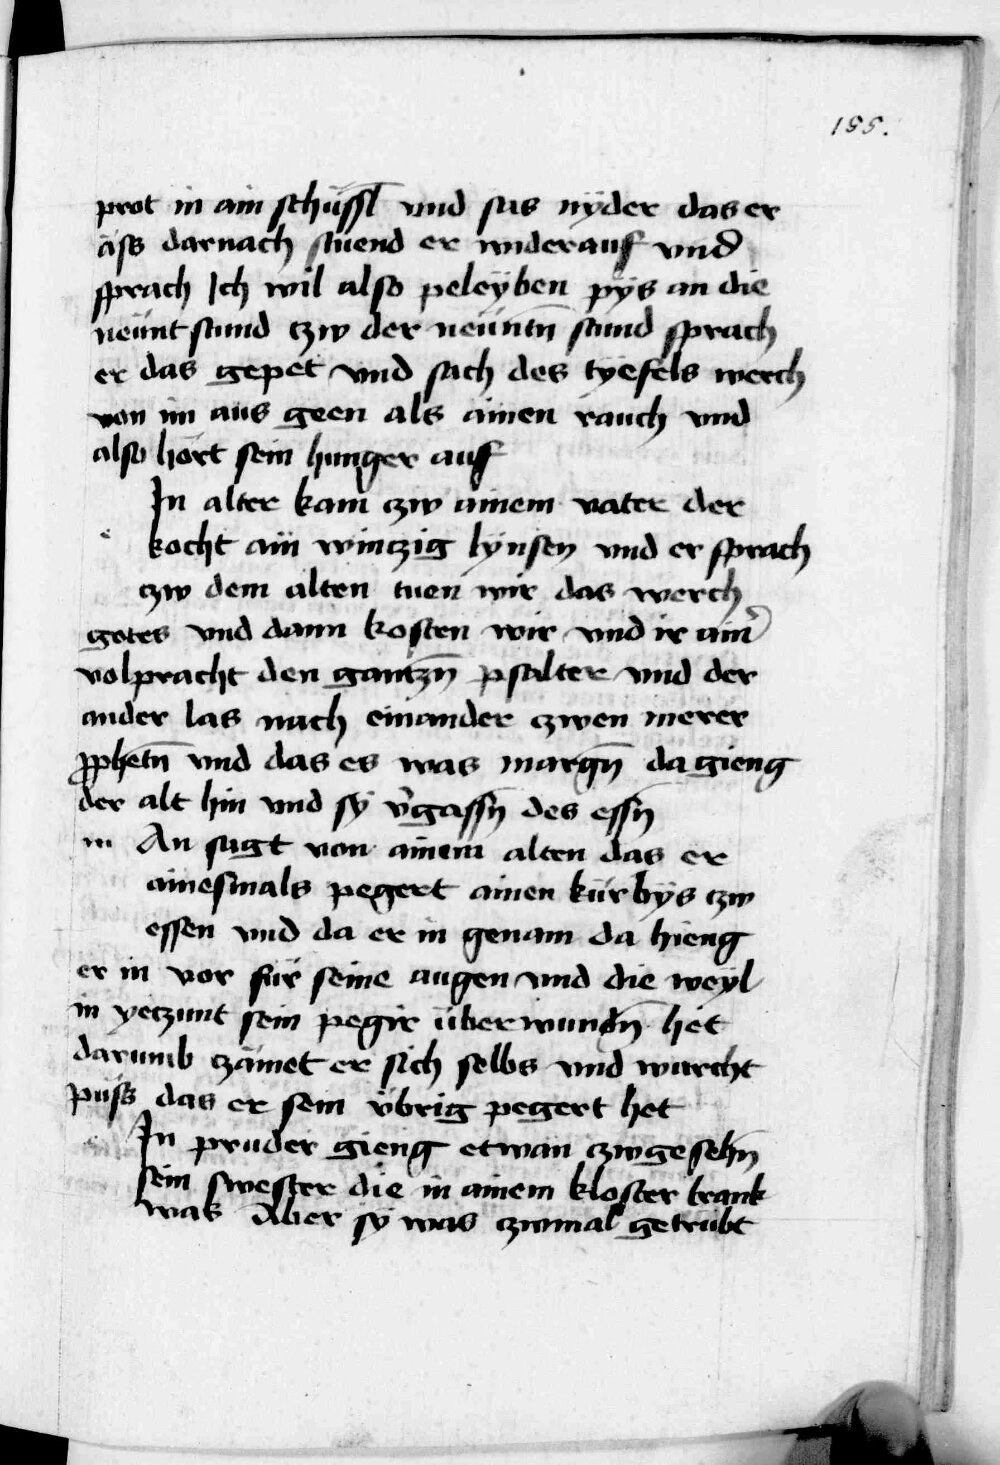 155.
prot in ain schüssl vnd sas nÿder das er
äss darnach stuend er widerauf vnd
sprach Ich wil also peleÿben pÿs an die
neünt stund czw der neüntn̄ stund sprach
er das gepet vnd sach des tÿefels werch
von im aus geen als ainen rauch vnd
also hört sein hunger auf
In alter kam czw ainem vater der
e kocht ain winczig lÿnsen vnd er sprach
czw dem alten tuen wir das werch
gotes vnd dann kosten wir vnd ir ain̄
volpracht den gantzn̄ psalter vnd der
ander las nach einander czwen merer
prophetn̄ vnd das es was margn̄ da gieng
der alt hin vnd sÿ v̓gassn̄ des essn̄
m An sagt von ainem alten das er
ainesmals pegert ainen kürbÿs czw
essen vnd da er in genam da hieng
er in vor für seine augen vnd die weÿl
in yeczunt sein pegir überwundn̄ het
darumb czämet er sich selbs vnd wurcht
püss das er sein vbrig pegert het
e In pruder gieng etwan czw gesehn̄
sein swester die in ainem kloster krank
was Aber sÿ was czwmal getrübt